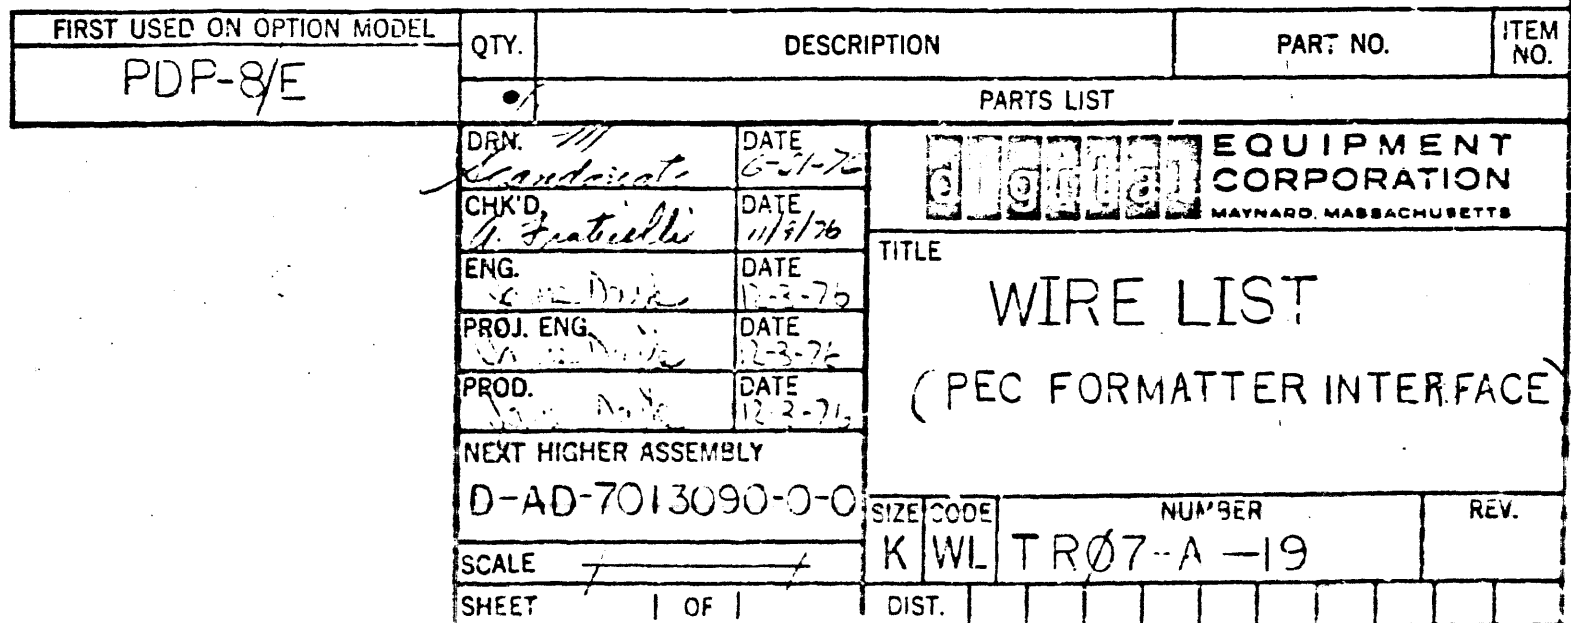 FIRST USED ON OPTION MODEL
PDP-8/E
QTY.
DESCRIPTION
PART NO.
ITEM NO.
PARTS LIST
DRN.
DATE
CHK'D
A. Fraticelli
DATE
11/9/76
ENG.
DATE
12-3-76
PROJ. ENG.
DATE
12-3-76
PROD.
DATE
12-3-76
NEXT HIGHER ASSEMBLY
D-AD-7013090-0-0
SCALE
SHEET 1 OF 1
digital EQUIPMENT CORPORATION
MAYNARD, MASSACHUSETTS
TITLE
WIRE LIST
(PEC FORMATTER INTERFACE)
SIZE
K
CODE
WL
NUMBER
TRØ7-A-19
REV.
DIST.